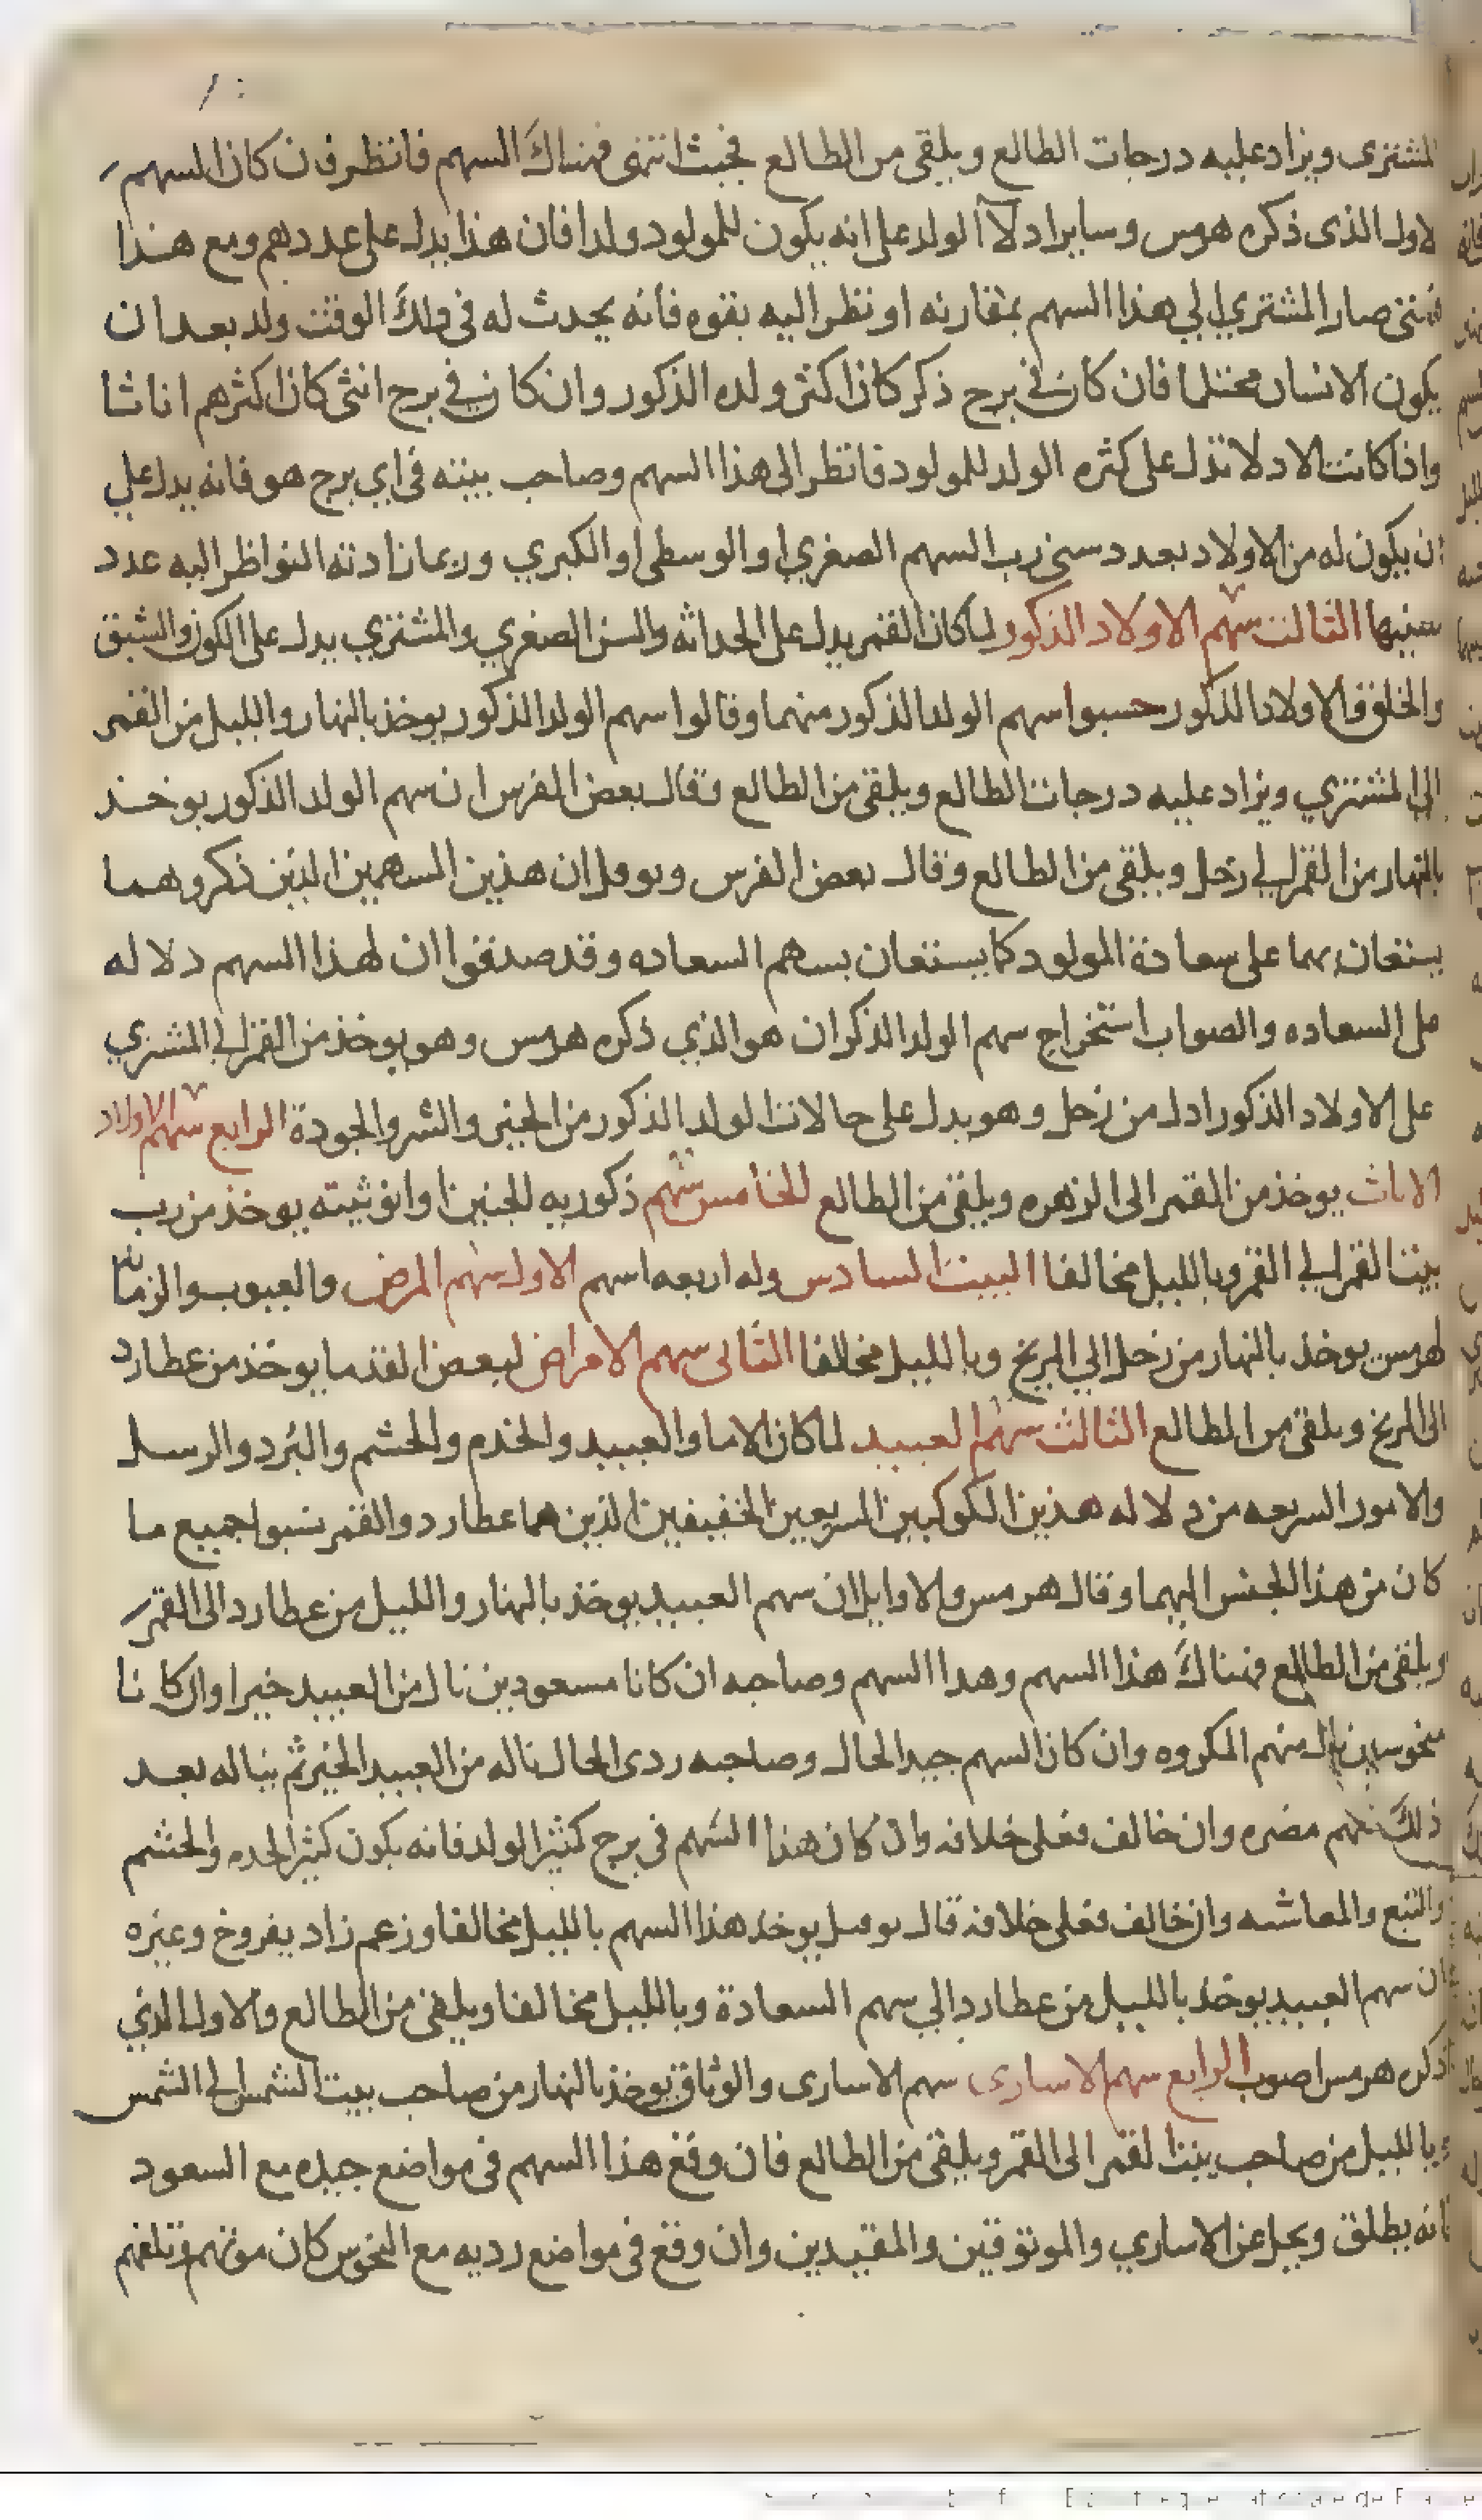 المشترى ويزاد عليه درجات الطالع ويلقى من الطالع فحيث انتهى فهناك السهم فانظر فان كان السهم
لاول الذى ذكره هرمس وساير ادلاا الولد على انه يكون للمولود ولدا فان هذا يدل على عددهم ومع هذا
فمتى صار المشتري الي هذا السهم بمقارنه او نظر اليه بقوه فانه يحدث له فى ذلك الوقت ولد بعد ان
يكون الانسان محتلما فان كان في برج ذكر كان اكثر ولده الذكور وان كان في برج انثى كان اكثرهم اناثا
واذا كانت الادلا تدل على كثره الولد للمولود فانظر الى هذا السهم وصاحب بيته فى اي برج هو فانه يدل علي
ان يكون له من الاولاد بعدد سنى رب السهم الصغري او الوسطى او الكبري وربما زادته النواظر اليه عدد
سنيها الثالث سهم الاولاد الذكور لما كان القمر يدل على الحداثه والسن الصغري والمشتري يدل على الكون والشبق
والخلق والاولاد الذكور حسبوا سهم الولد الذكور منهما وقالوا سهم الولد الذكور يوخذ بالنهار والليل من القمر
الي المشتري ويزاد عليه درجات الطالع ويلقى من الطالع وقال بعض الفرس ان سهم الولد الذكور يوخذ
بالنهار من القمر الي زحل ويلقى من الطالع وقال بعض الفرس وبوفل ان هذين السهمين الذين ذكروهما
يستعان بهما على سعادة المولود كما يستعان بسهم السعاده وقد صدقوا ان لهذا السهم دلاله
على السعاده والصواب استخراج سهم الولد الذكران هو الذي ذكره هرمس وهو يوخذ من القمر الي المشتري
على الاولاد الذكور ادل من زحل وهو يدل على حالات الولد الذكور من الخير والشر والجودة الرابع سهم الاولاد
الاناث يوخذ من القمر الى الزهره ويلقى من الطالع الخامس سهم ذكوريه الجنين او انوثيته يوخذ من رب
بيت القمر الي القمر وبالليل مخالفا البيت السادس وله اربعه اسهم الاول سهم المرض والعيوب والزمانه
لهرمس يوخذ بالنهار من زحل الي المريخ وبالليل مخالفا الثانى سهم الامراض لبعض القدما يوخذ من عطارد
الى المريخ ويلقى من الطالع الثالث سهم العبيد لما كان الاما والعبيد والخدم والحشم والبُرد والرسل
والامور السريعه من دلاله هذين الكوكبين السريعين الخفيفين الذين هما عطارد والقمر نسبوا جميع ما
كان من هذا الجنس اليهما وقال هرمس والاوايل ان سهم العبيد يوخذ بالنهار والليل من عطارد الى القمر
ويلقى من الطالع فهناك هذا السهم وهدا السهم وصاحبه ان كانا مسعودين نال من العبيد خيرا وان كانا
منحوسين نال منهم المكروه وان كان السهم جيد الحال وصاحبه ردى الحال ناله من العبيد الخير ثم يناله بعد
ذلك منهم مضره وان خالف فعلى خلافه وان كان هذا السهم فى برج كثير الولد فانه يكون كثير الخدم والحشم
والتبع والمعاشه وان خالف فعلى خلافه قال بوفل يوخذ هذا السهم بالليل مخالفا وزعم زاد يفروخ وغيره
ان سهم العبيد يوخذ بالليل من عطارد الي سهم السعادة وبالليل مخالفا ويلقى من الطالع والاول الذي
ذكره هرمس اصوب الرابع سهم الاسارى سهم الاسارى والوثاق يوخذ بالنهار من صاحب بيت الشمس الي الشمس
وبالليل من صاحب بيت القمر الى القمر ويلقى من الطالع فان وقع هذا السهم فى مواضع جيده مع السعود
فانه يطلق ويحل عن الاساري والموتوقين والمقيدين وان وقع فى مواضع رديه مع النحوس كان موتهم وتلفهم